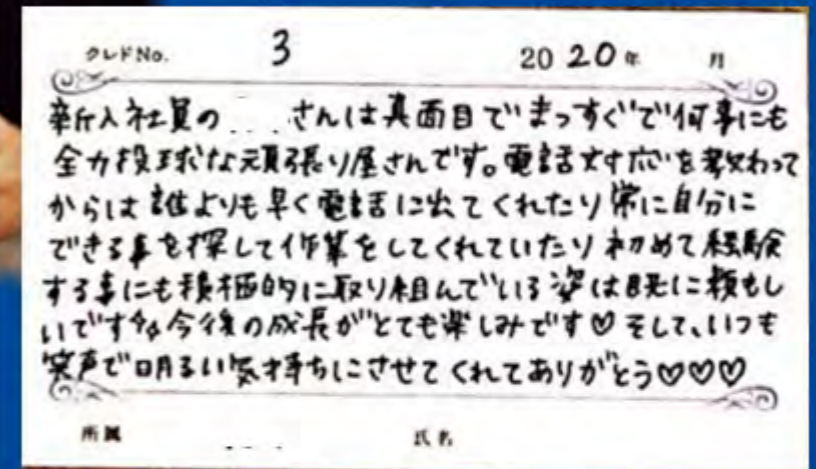 クレドNo. 3 2020年 月
新入社員の さんは真面目でまっすぐで何事にも
全力投球な頑張り屋さんです。電話対応を教わって
からは誰よりも早く電話に出てくれたり常に自分に
できる事を探して作業をしてくれていたり初めて経験
する事にも積極的に取り組んでいる姿は既に頼もし
いです 今後の成長がとても楽しみです♡そして、いつも
笑声で明るい気持ちにさせてくれてありがとう♡♡♡
所属 氏名